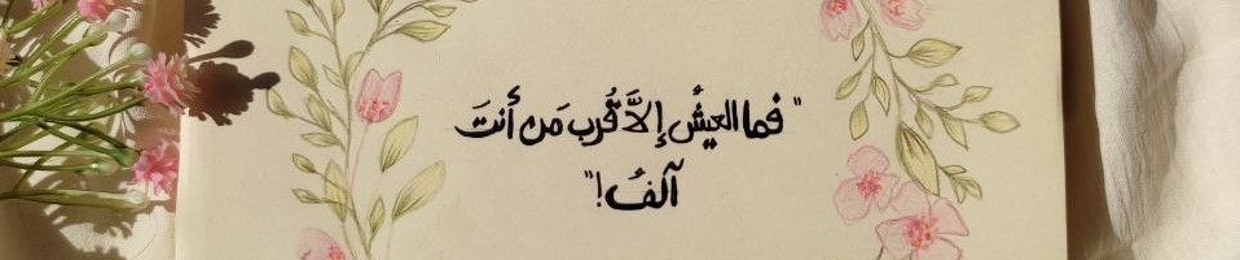 "فما العيشُ إلَّا قُرب مَن أنتَ
آلفُ!"